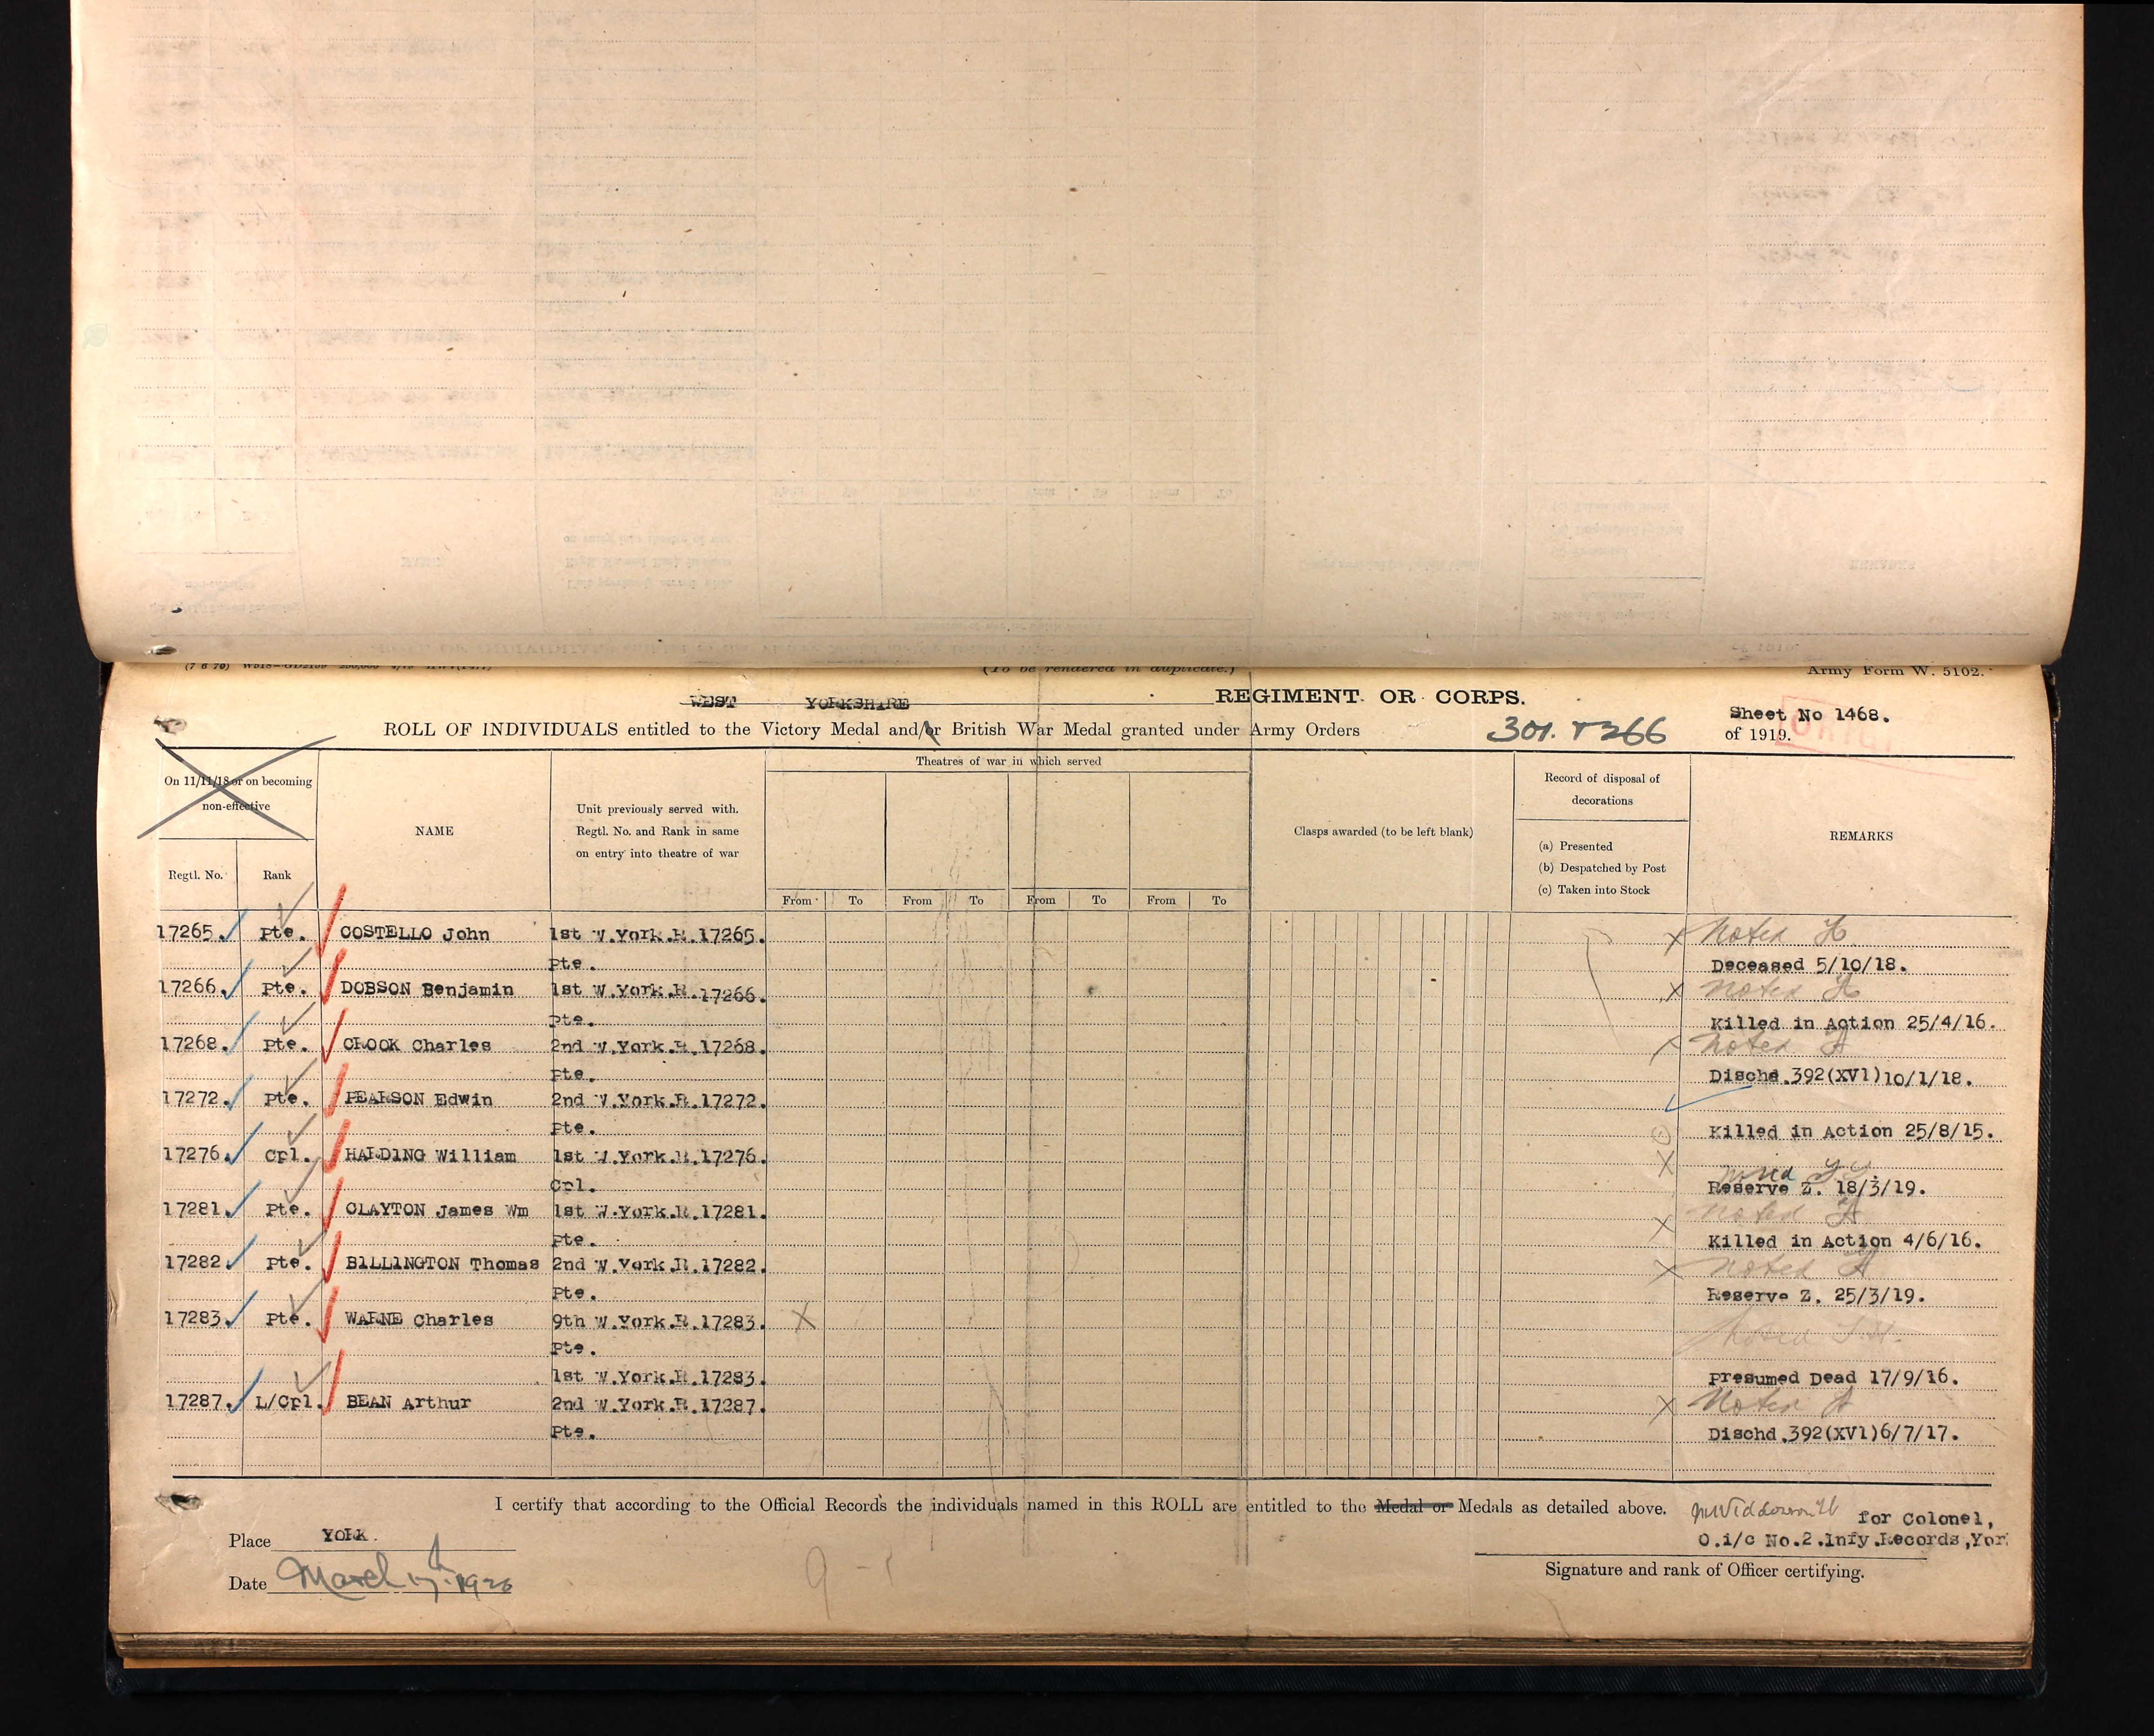 (To be rendered in duplicate.)
Army Form W. 5102.
WEST YORKSHIRE REGIMENT OR CORPS.
Sheet No 1468.
ROLL OF INDIVIDUALS entitled to the Victory Medal and/or British War Medal granted under Army Orders 301. & 266 of 1919.
On 11/11/18 or on becoming non-effective
Regtl. No.
Rank
NAME
Unit previously served with. Regtl. No. and Rank in same on entry into theatre of war
Theatres of war in which served
From To From To From To From To
Clasps awarded (to be left blank)
Record of disposal of decorations
(a) Presented
(b) Despatched by Post
(c) Taken into Stock
REMARKS
17265. Pte. COSTELLO John 1st W.York.R.17265. Noted
Pte. Deceased 5/10/18.
17266. Pte. DOBSON Benjamin 1st W.York.R.17266. Noted
Pte. Killed in Action 25/4/16.
17268. Pte. CROOK Charles 2nd W.York.R.17268. Noted
Pte. Dischd.392(XV1)10/1/18.
17272. Pte. PEARSON Edwin 2nd W.York.R.17272.
Pte. Killed in Action 25/8/15.
17276. Cpl. HARDING William 1st W.York.R.17276.
Cpl. Reserve Z. 18/3/19.
17281. Pte. CLAYTON James Wm 1st W.York.R.17281. Noted
Pte. Killed in Action 4/6/16.
17282. Pte. BILLINGTON Thomas 2nd W.York.R.17282. Noted
Pte. Reserve Z. 25/3/19.
17283. Pte. WARNE Charles 9th W.York.R.17283. X
Pte.
1st W.York.R.17283. Presumed Dead 17/9/16.
17287. L/Cpl. BEAN Arthur 2nd W.York.R.17287. Noted
Pte. Dischd.392(XV1)6/7/17.
I certify that according to the Official Records the individuals named in this ROLL are entitled to the Medal or Medals as detailed above.
for Colonel,
Place YORK.
O.i/c No.2.Infy.Records,Yor
Date March 17th 1920
Signature and rank of Officer certifying.